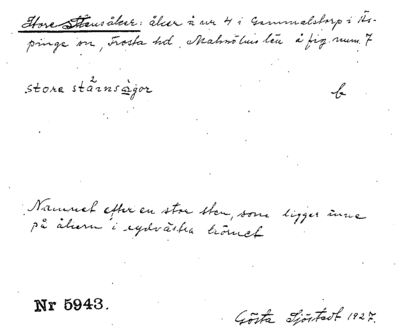 Store Stensåker: åker å nr 4 i Gammalstorp i Äs-
pinge sn, Frosta hd Malmöhus län å fig. num. 7
store stäi²nsågor b
Namnet efter en stor sten, som ligger inne
på åkern i sydvästra hörnet
Nr 5943.
Gösta Sjöstedt 1927.